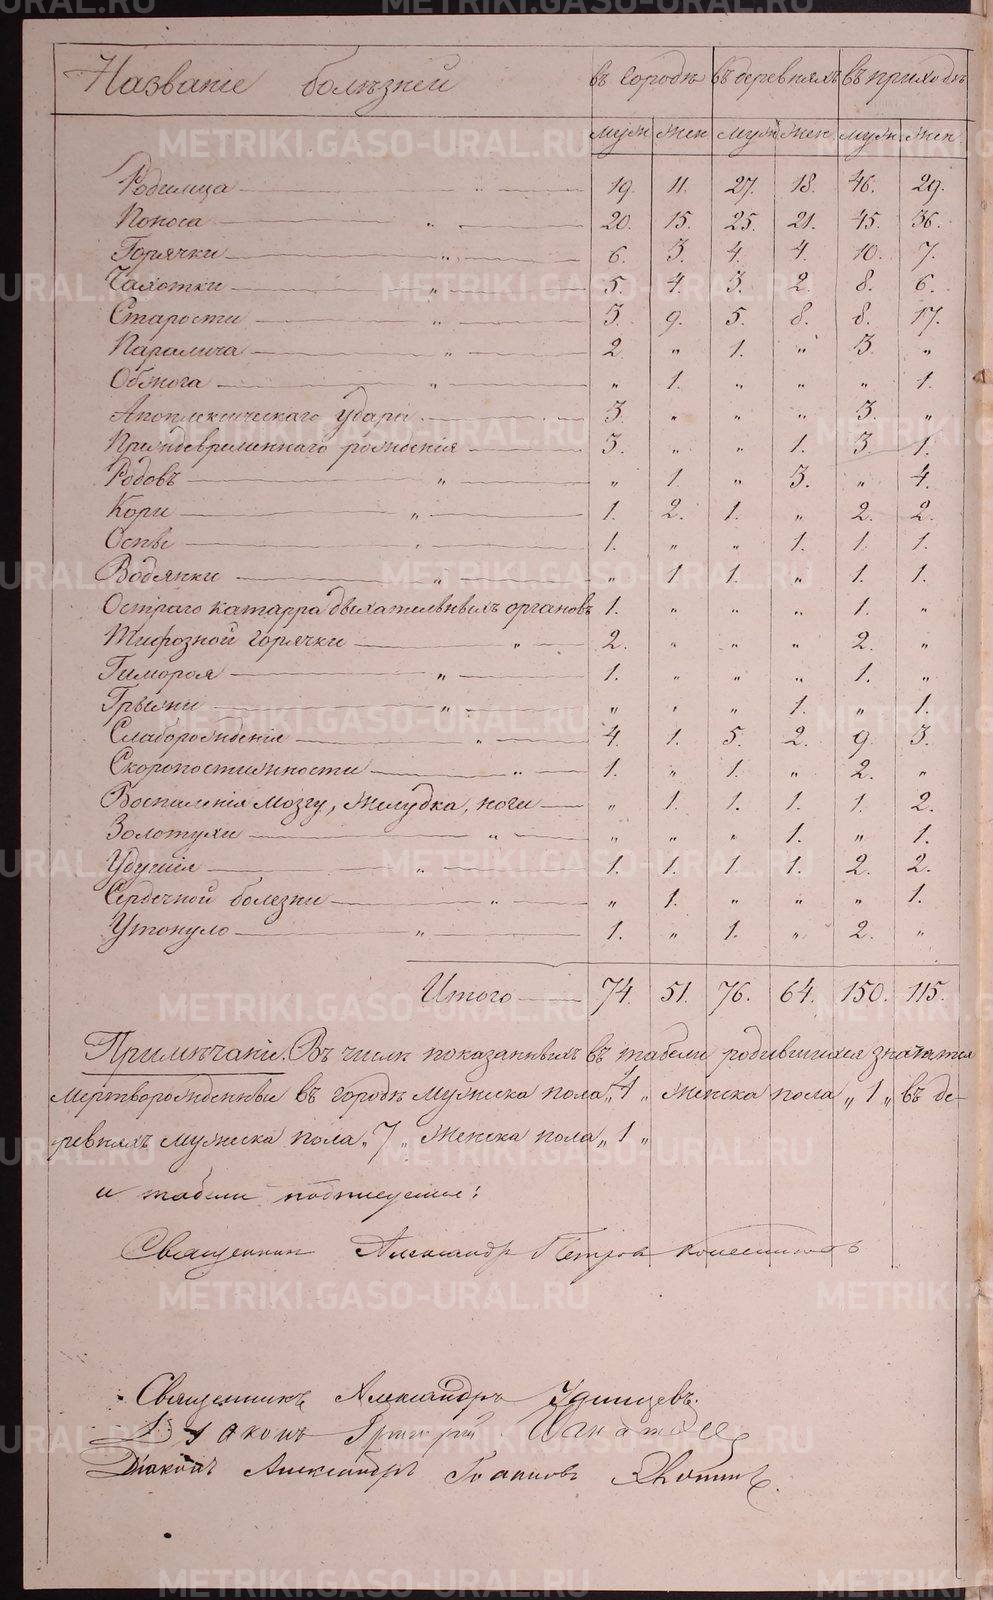 Названіе болѣзней въ городѣ въ деревняхъ въ приходѣ
муж жен муж жен муж жен
Родимца „ 19. 11. 27. 18. 46. 29.
Поноса „ 20. 15. 25. 21. 45. 36.
Горячки „ 6. 3. 4. 4. 10. 7.
Чахотки „ 5. 4. 3. 2. 8. 6.
Старости „ 3. 9. 5. 8. 8. 17.
Паралича „ 2 „ 1. „ 3. „
Обжога „ „ 1. „ „ „ 1.
Апоплексическаго удара 3. „ „ „ 3. „
Преждевременнаго рожденія 3. „ „ 1. 3. 1.
Родовъ „ „ 1. „ 3. „ 4.
Кори „ 1. 2. 1. „ 2. 2.
Оспы „ 1. „ „ 1. 1. 1.
Водянки „ „ 1 1. „ 1. 1.
Остраго катарра дыхательныхъ органовъ 1. „ „ „ 1. „
Тифозной горячки „ 2. „ „ „ 2. „
Гимороя „ 1. „ „ „ 1. „
Грыжи „ „ „ „ 1. „ 1.
Слаборожденія „ 4. 1. 5. 2. 9. 3.
Скоропостижности „ 1. „ 1. „ 2. „
Воспаленія мозгу, желудка, ноги „ 1. 1. 1. 1. 2.
Золотухи „ „ „ „ 1. „ 1.
Удушія „ 1. 1. 1. 1. 2. 2.
Сердечной болезни „ „ 1. „ „ „ 1.
Утонуло „ 1. „ 1. „ 2. „
Итого 74. 51. 76. 64. 150. 115.
Примѣчаніе. Въ числѣ показанныхъ въ табели родившихся значатся
мертворожденные въ городѣ мужска пола „4„ женска пола „1„ въ де-
ревняхъ мужска пола „7„ женска пола „1„
и табели подписуемся:
Священник Александр Петров
Священникъ Александръ Удинцевъ.
Діаконъ Григорій
Діаконъ Александръ Іоанновъ
METRIKI.GASO-URAL.RU